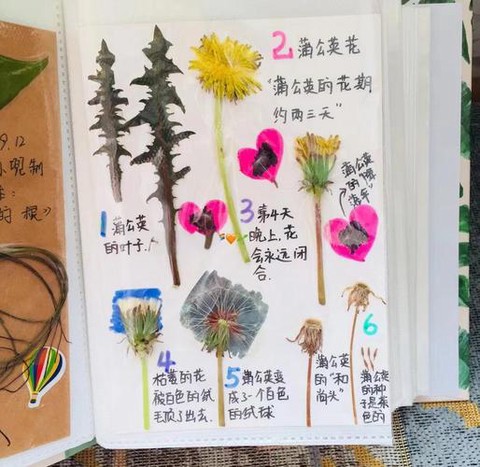 9.12
现制
的根》
1 蒲公英
的叶子.
2 蒲公英花
"蒲公英的花期
约两三天"
3 第4天
晚上,花
会永远闭
合.
蒲公英
的
4
枯萎的花
被白色的绒
毛顶了出去.
5 蒲公英变
成了一个白色
的绒球
蒲公英
的"和
尚头"
6
蒲公英
的种
子是茶
色的